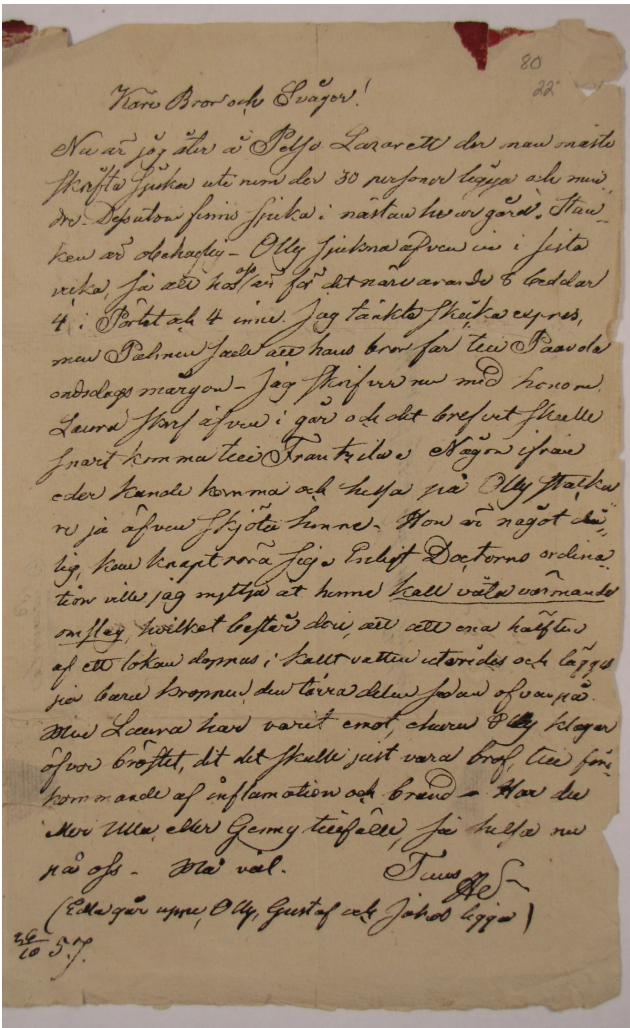 80
22
Käre Bror och Svåger!
Nu är jag åter å Pelso Lazarett der man måste
skrifta sjuka uti rum der 30 personer ligga och min-
dre. Dessutom finns sjuka i nästan hvar gård.
ken är obehaglig - Olly sjukna äfven in i sista
veka, så att hos oss är för det närvarande 8 beddar
4 i Pörtet och 4 inne. Jag tänkte skicka expres,
men Pehnen sade att hans bror far till Paavola
ondsdags morgon - jag skrifver nu med honom.
Laura skref äfven i går och det brefvet skulle
snart komma till Frantzila. Någon ifrån
eder kunde komma och helsa på Olly
re ja äfven sköta henne - Hon är något då-
lig, kan knapt röra sig. Enligt Doctorns ordina-
tion ville jag nyttja at henne kall våta värmande
omslag, hvilket består deri, att att ena hälften
af ett lakan doppas i kallt vatten utvrides och lägges
på bara kroppen, den torra delen sedan ofvanpå.
Min Laura har varit emot, churu Olly klagar
öfver bröstet, dit det skulle just vara bra, till före-
kommande af inflamation och brand - Har du
Mor Ulla eller Genny tillfälle, så helsa nu
på oss - Må väl. Tuus
(Edla går uppe, Olly, Gustaf och Jakob ligga)
26/10 57.